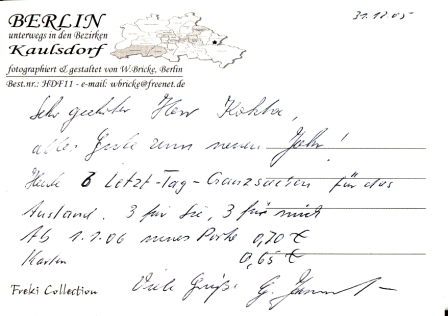 31.12.05
BERLIN
unterwegs in den Bezirken
Kaulsdorf
fotographiert & gestaltet von W.Bricke, Berlin
Best.nr.: HDF11 - e-mail: wbricke@freenet.de
Sehr geehrter Herr
alles Gute zum neuen Jahr!
Heute 6 Letzt-Tag-Ganzsachen für das
Ausland. 3 für Sie, 3 für mich
Ab 1.1.06 neues Porto 0,70 €
Karten 0,65 €
Viele Grüße G.
Freki Collection